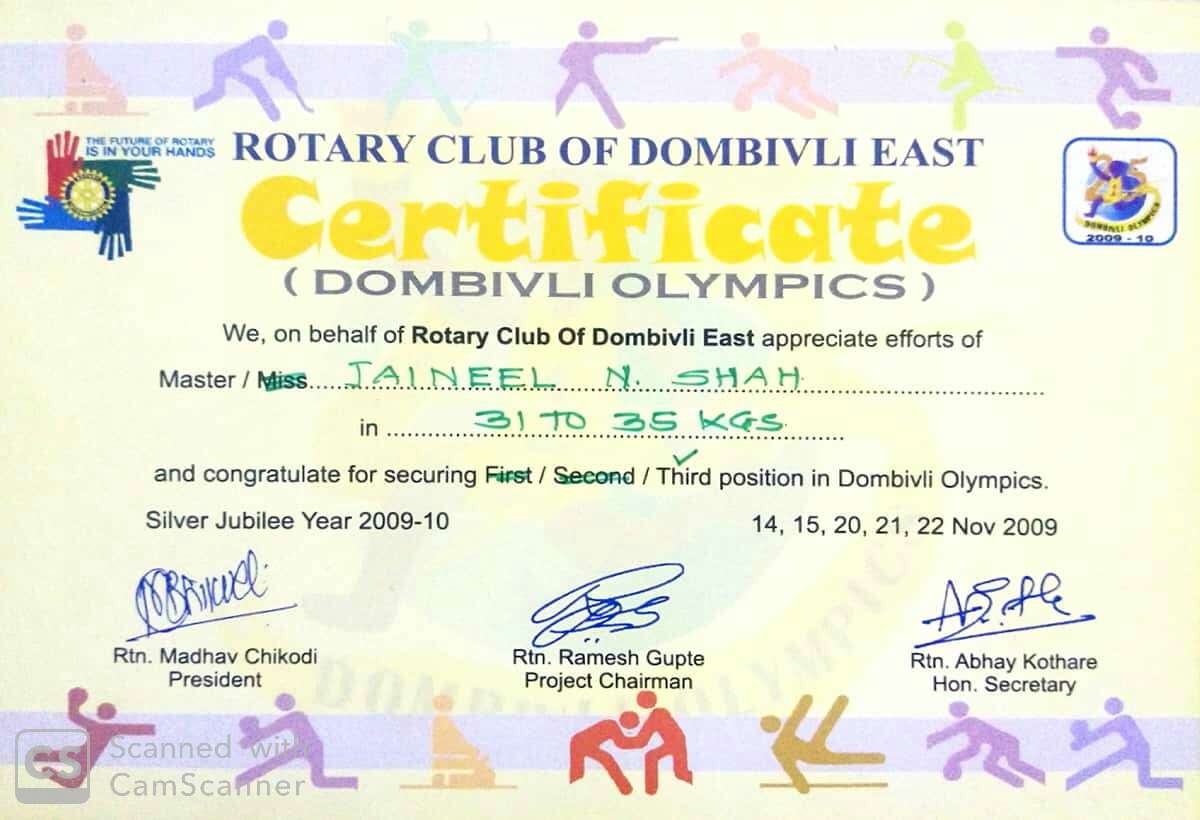 THE FUTURE OF ROTARY
IS IN YOUR HANDS
ROTARY CLUB OF DOMBIVLI EAST
Certificate
( DOMBIVLI OLYMPICS )
DOMBIVLI OLYMPICS
2009 - 10
We, on behalf of Rotary Club Of Dombivli East appreciate efforts of
Master / Miss.... JAINEEL N. SHAH
in 31 TO 35 KGS
and congratulate for securing First / Second / Third position in Dombivli Olympics.
Silver Jubilee Year 2009-10
14, 15, 20, 21, 22 Nov 2009
Rtn. Madhav Chikodi
President
Rtn. Ramesh Gupte
Project Chairman
Rtn. Abhay Kothare
Hon. Secretary
DOMBIVLI OLYMPICS
CS Scanned with
CamScanner